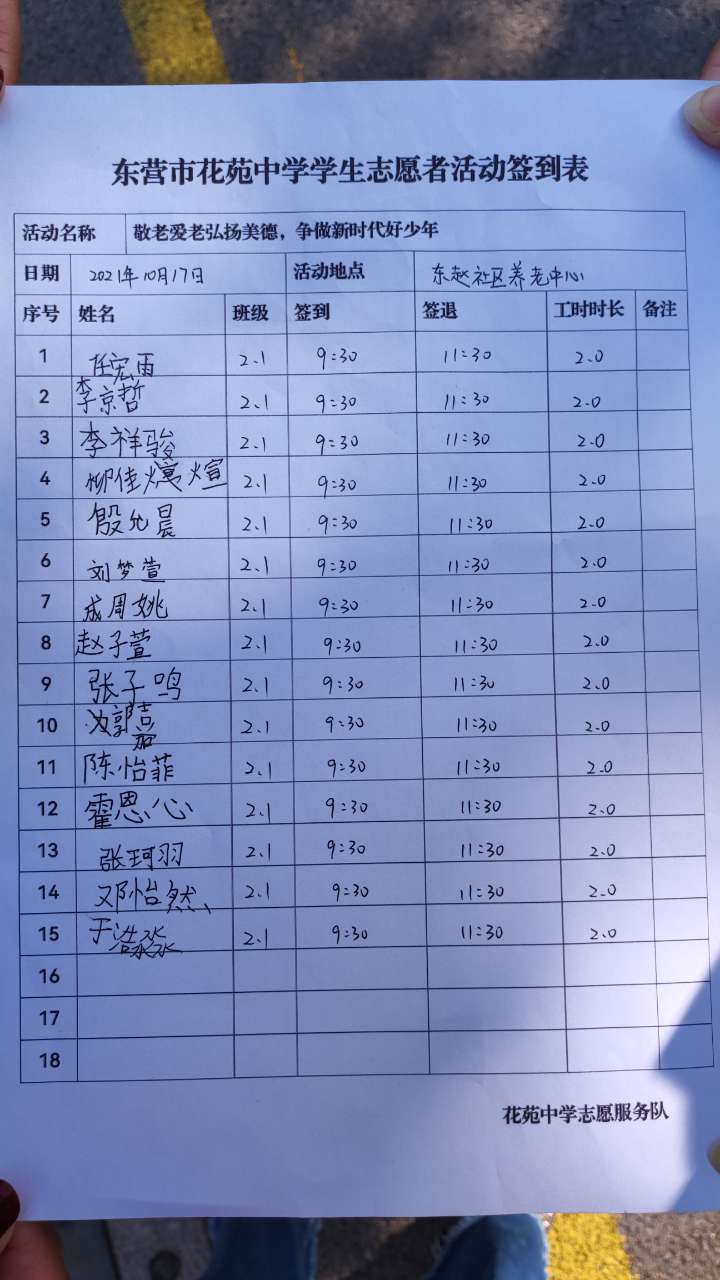 东营市花苑中学学生志愿者活动签到表
活动名称 敬老爱老弘扬美德，争做新时代好少年
日期 2021年10月17日 活动地点 东赵社区养老中心
序号 姓名 班级 签到 签退 工时时长 备注
1 任宏雨 2.1 9:30 11:30 2.0
2 李京哲 2.1 9:30 11:30 2.0
3 李祥骏 2.1 9:30 11:30 2.0
4 柳佳煊 2.1 9:30 11:30 2.0
5 殷允晨 2.1 9:30 11:30 2.0
6 刘梦萱 2.1 9:30 11:30 2.0
7 成周姚 2.1 9:30 11:30 2.0
8 赵子萱 2.1 9:30 11:30 2.0
9 张子鸣 2.1 9:30 11:30 2.0
10 2.1 9:30 11:30 2.0
11 陈怡菲 2.1 9:30 11:30 2.0
12 霍恩心 2.1 9:30 11:30 2.0
13 张珂羽 2.1 9:30 11:30 2.0
14 邓怡然 2.1 9:30 11:30 2.0
15 于浩淼 2.1 9:30 11:30 2.0
16
17
18
花苑中学志愿服务队